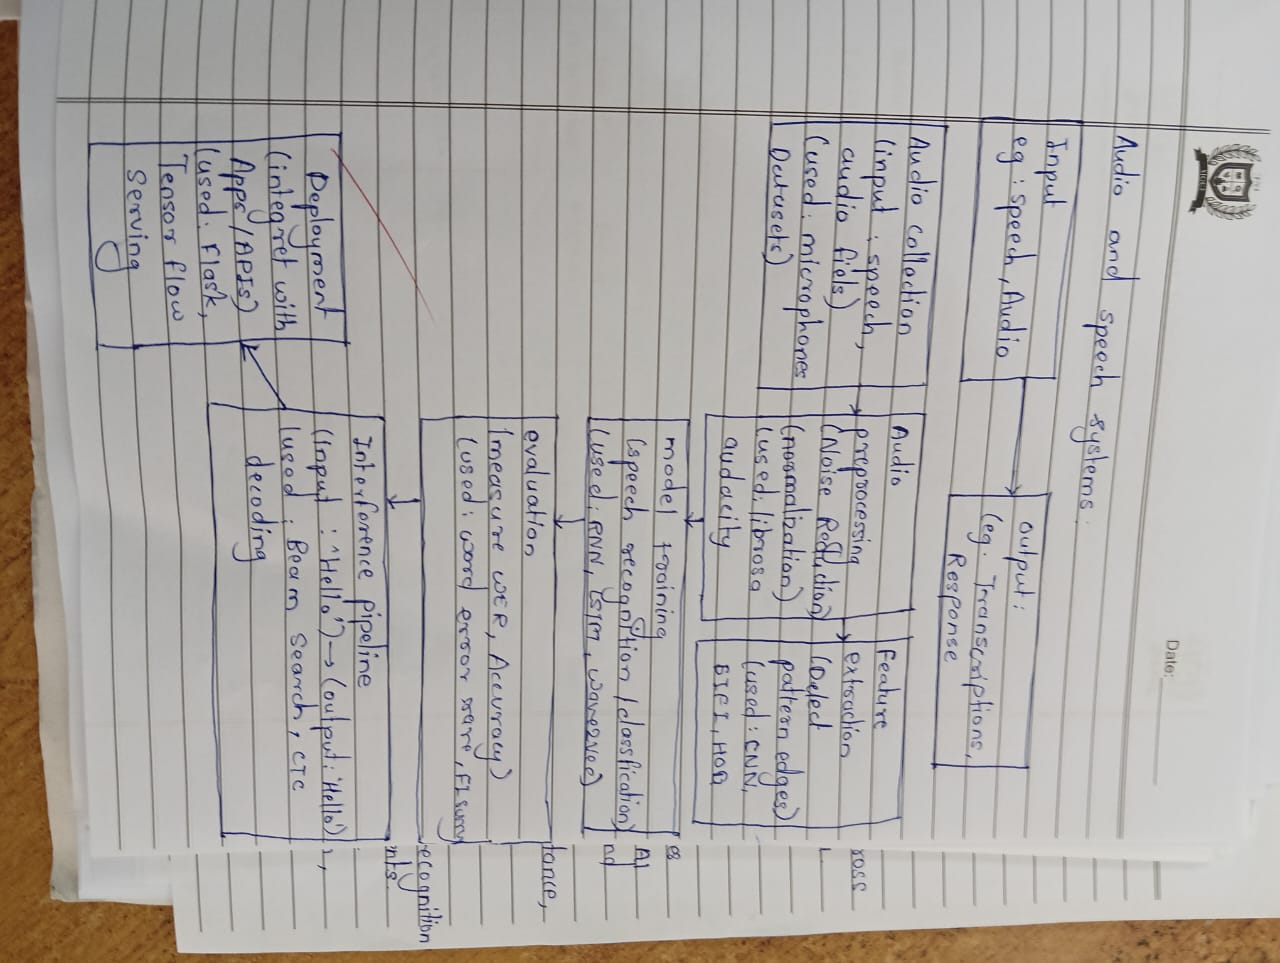 Date:
Audio and speech systems:
Input
eg : speech, Audio
output:
(eg. Transcriptions,
Response
Audio collection
(input : speech,
audio fiels)
(used: microphones
Datasets)
Audio
preprocessing
(Noise Reduction)
(normalization)
(used: librosa
audacity
Feature
extraction
(Detect
pattern edges)
(used: CNN,
SIFT, HOG
model training
(speech recognition / classfication)
(used: RNN, LSTM, wave2vec)
evaluation
(measure WER, Accuracy)
(used: word error
Interference pipeline
(Input : "Hello") → (output: 'Hello')
(used : Beam Search, CTC
decoding
Deployment
(integret with
Apps / APIs)
(used: Flask,
Tensor flow
Serving
ross
es
AI
nd
tance,
ecognition
nts.